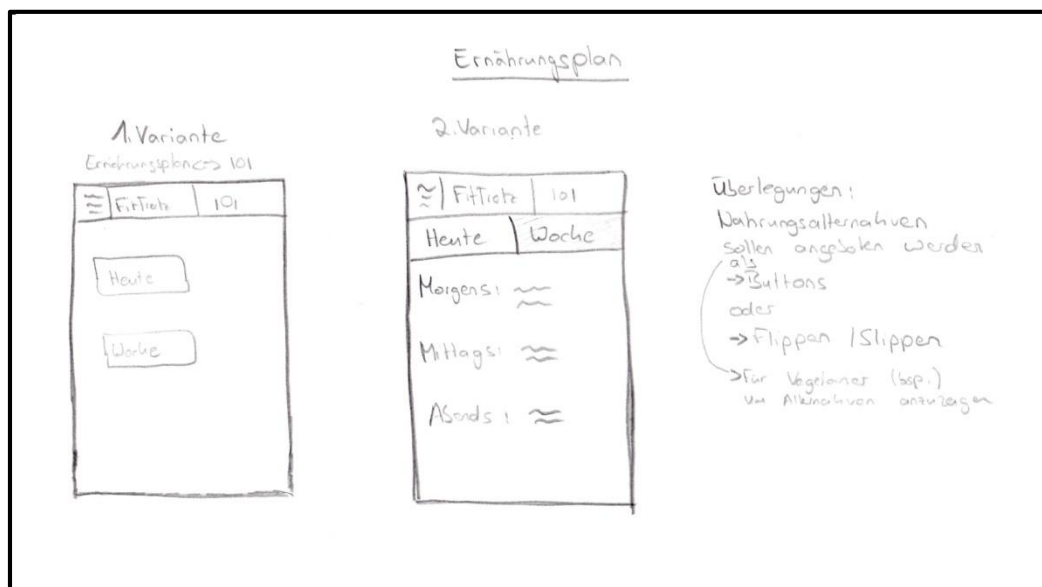 Ernährungsplan
1. Variante
Ernährungsplan <=> 101
FitTietz 101
Heute
Woche
2. Variante
FitTietz 101
Heute Woche
Morgens:
Mittags:
Abends:
Überlegungen:
Nahrungsalternativen
sollen angeboten werden
als
-> Buttons
oder
-> Flippen / Slippen
-> Für (bsp.)
um Alternativen anzuzeigen